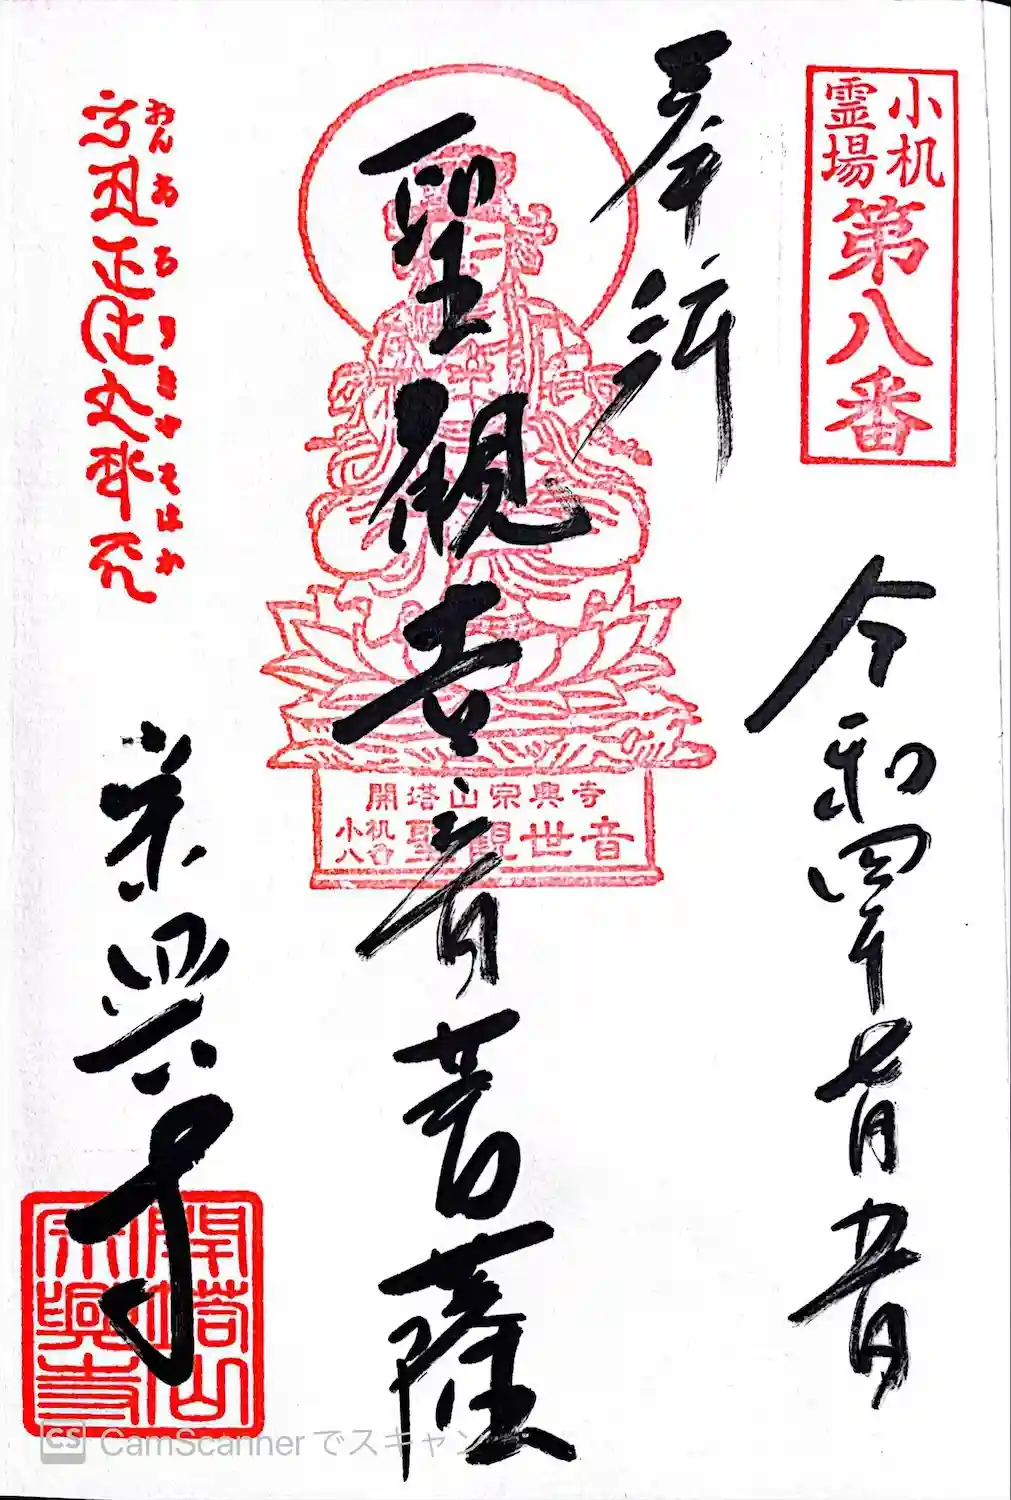 小机
霊場
第八番
奉拝
令和四年七月廿五日
聖観世音菩薩
開塔山宗興寺
小机
八番
聖観世音
おんあろりきゃそはか
宗興寺
開塔山
宗興寺
CS CamScannerでスキャン